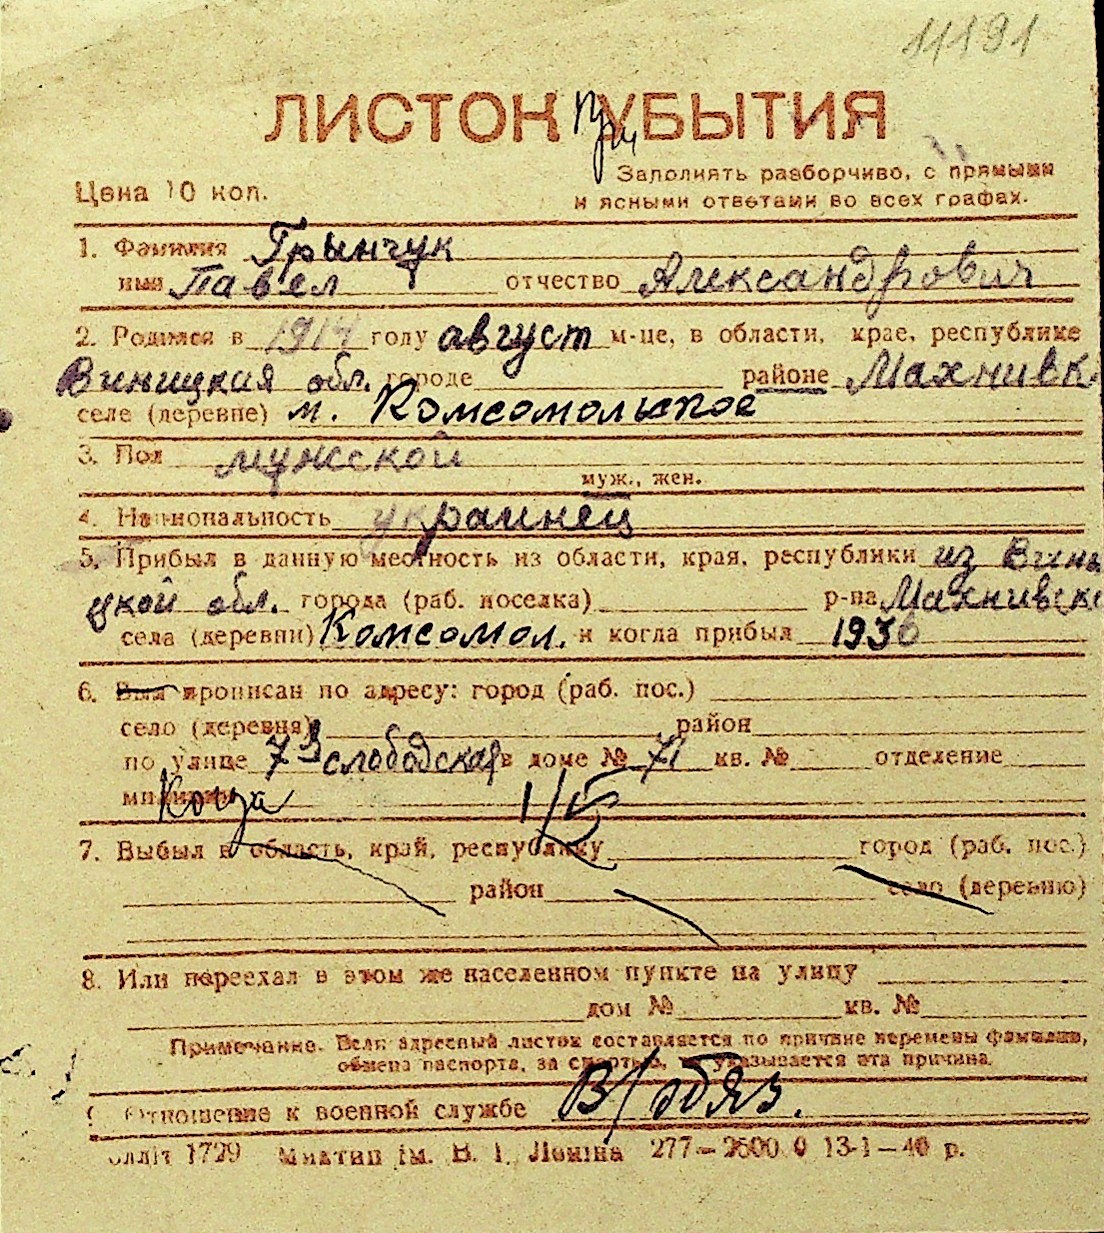 11191
ЛИСТОК При УБЫТИЯ
Цена 10 коп.
Заполнять разборчиво, с прямыми
и ясными ответами во всех графах.
1. Фамилия Грынчук
имя Павел отчество Александрович
2. Родился в 1914 году август м-це, в области, крае, республике
Виницкая обл. городе районе Махнивк.
селе (деревне) м. Комсомольское
3. Пол мужской
муж., жен.
4. Национальность украинец
5. Прибыл в данную местность из области, края, республики из Вини
цкой обл. города (раб. поселка) р-на Махнивск
села (деревни) Комсомол. и когда прибыл 1936
6. Был прописан по адресу: город (раб. пос.)
село (деревня) район
по улице 7 я слободская в доме № 71 кв. № отделение
милиции Когда 1/5
7. Выбыл в область, край, республику город (раб. пос.)
район село (деревню)
8. Или переехал в этом же населенном пункте на улицу
дом № кв. №
Примечание. Если адресный листок составляется по причине перемены фамилии,
обмена паспорта, за смертью, указывается эта причина.
Отношение к военной службе В/обяз.
оллiт 1729 Миктип iм. В. I. Ленiна 277—2600 0 13-1—40 р.